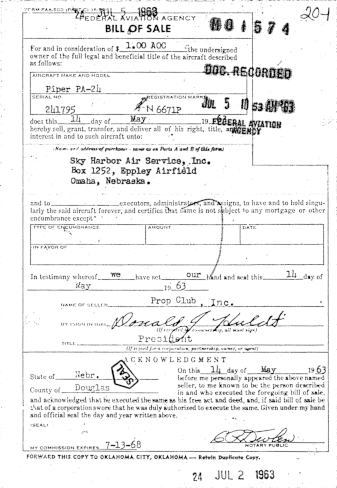 JUL 5 1963
FEDERAL AVIATION AGENCY
BILL OF SALE
M01574
20-1
For and in consideration of $ 1.00 AOC the undersigned
owner of the full legal and beneficial title of the aircraft described
as follows:
DOC. RECORDED
AIRCRAFT MAKE AND MODEL
Piper PA-24
SERIAL NO.
REGISTRATION MARKS
241795
N 6671P
JUL 5 10 53 AM '63
FEDERAL AVIATION
AGENCY
does this 14 day of May 19
hereby sell, grant, transfer, and deliver all of his right, title, and
interest in and to such aircraft unto:
(Name and address of purchaser - same as on Parts A and B of this form)
Sky Harbor Air Service, Inc.
Box 1252, Eppley Airfield
Omaha, Nebraska.
and to executors, administrators, and assigns, to have and to hold singu-
larly the said aircraft forever, and certifies that same is not subject to any mortgage or other
encumbrance except
TYPE OF ENCUMBRANCE
AMOUNT
DATE
IN FAVOR OF
In testimony whereof we have set our hand and seal this 14 day of
May 19 63
NAME OF SELLER Prop Club, Inc.
BY (SIGN IN INK) Donald J. Huldt
TITLE President
(If signed for a corporation, partnership, owner, or agent)
ACKNOWLEDGMENT
State of Nebr.
County of Douglas
SEAL
On this 14 day of May 1963
before me personally appeared the above named
seller, to me known to be the person described
in and who executed the foregoing bill of sale,
and acknowledged that he executed the same as his free act and deed, and, if said bill of sale be
that of a corporation swore that he was duly authorized to execute the same. Given under my hand
and official seal the day and year written above.
(SEAL)
MY COMMISSION EXPIRES 7-13-68
NOTARY PUBLIC
FORWARD THIS COPY TO OKLAHOMA CITY, OKLAHOMA — Retain Duplicate Copy.
24 JUL 2 1963